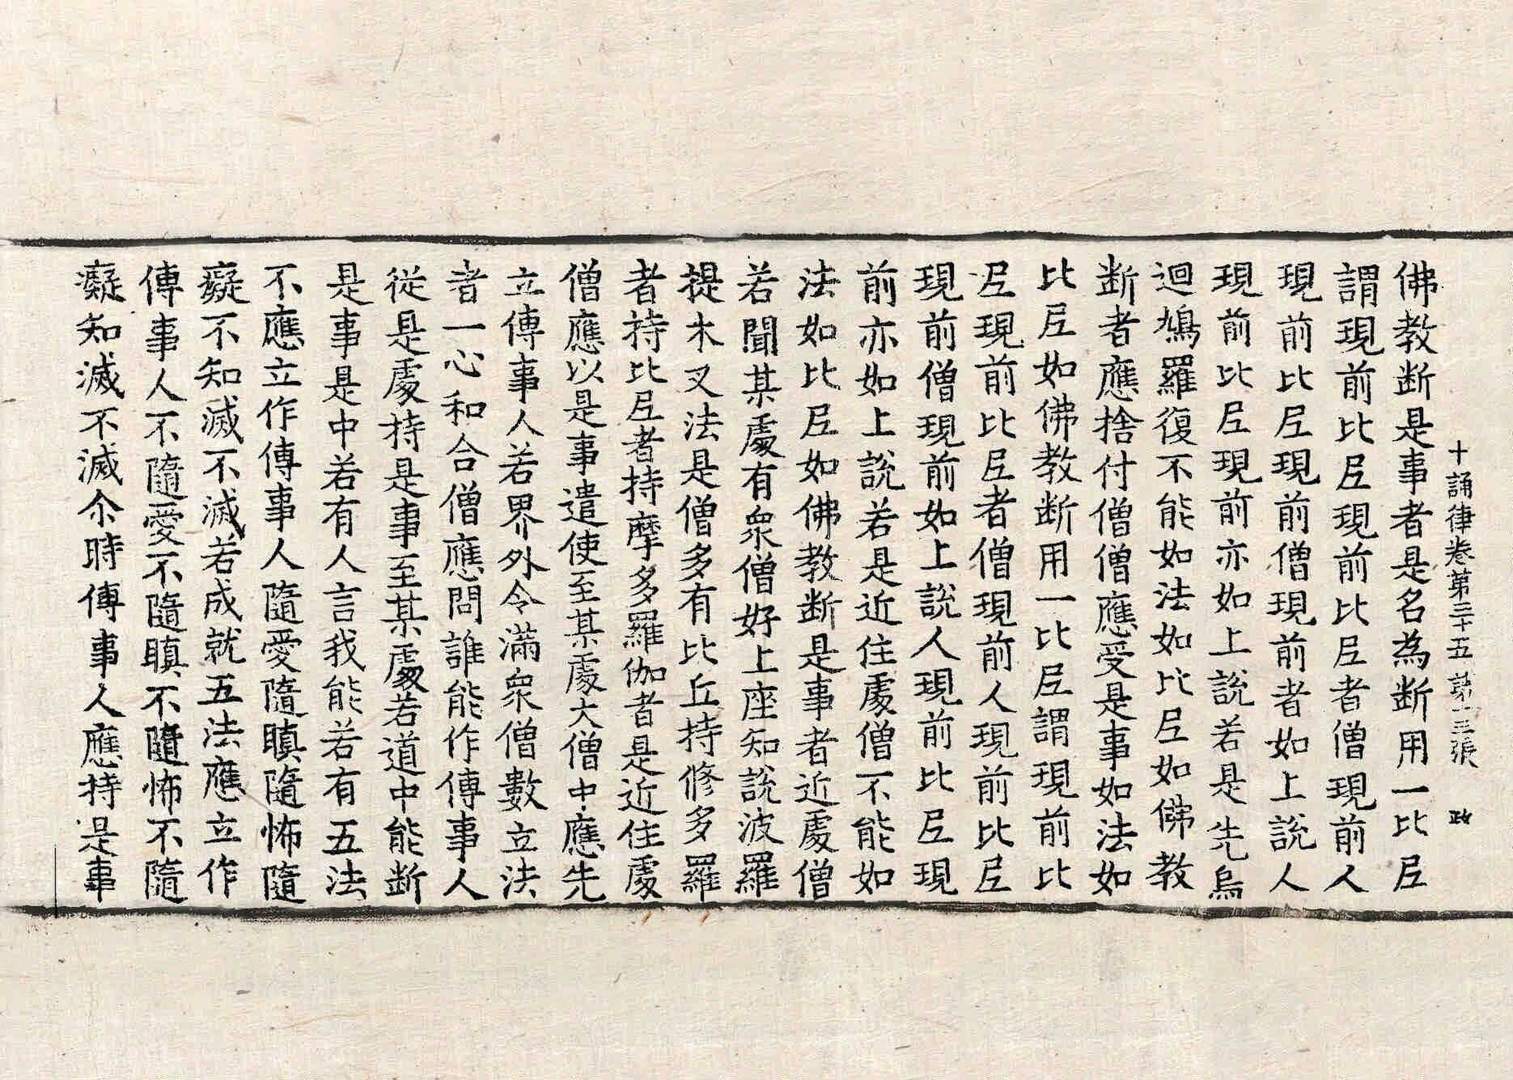 十誦律卷第三十五 第十三張 政
佛教断是事者是名為断用一比𡰱
謂現前比𡰱現前比𡰱者僧現前人
現前比𡰱現前僧現前者如上說人
現前比𡰱現前亦如上說若是先烏
迴鳩羅復不能如法如比𡰱如佛教
断者應捨付僧僧應受是事如法如
比𡰱如佛教断用一比𡰱謂現前比
𡰱現前比𡰱者僧現前人現前比𡰱
現前僧現前如上說人現前比𡰱現
前亦如上說若是近住處僧不能如
法如比𡰱如佛教断是事者近處僧
若聞某處有眾僧好上座知說波羅
提木叉法是僧多有比丘持修多羅
者持比𡰱者持摩多羅伽者是近住處
僧應以是事遣使至某處大僧中應先
立傳事人若界外令滿眾僧數立法
者一心和合僧應問誰能作傳事人
從是處持是事至某處若道中能断
是事是中若有人言我能若有五法
不應立作傳事人隨愛隨瞋隨怖隨
癡不知滅不滅若成就五法應立作
傳事人不隨愛不隨瞋不隨怖不隨
癡知滅不滅尒時傳事人應持是事